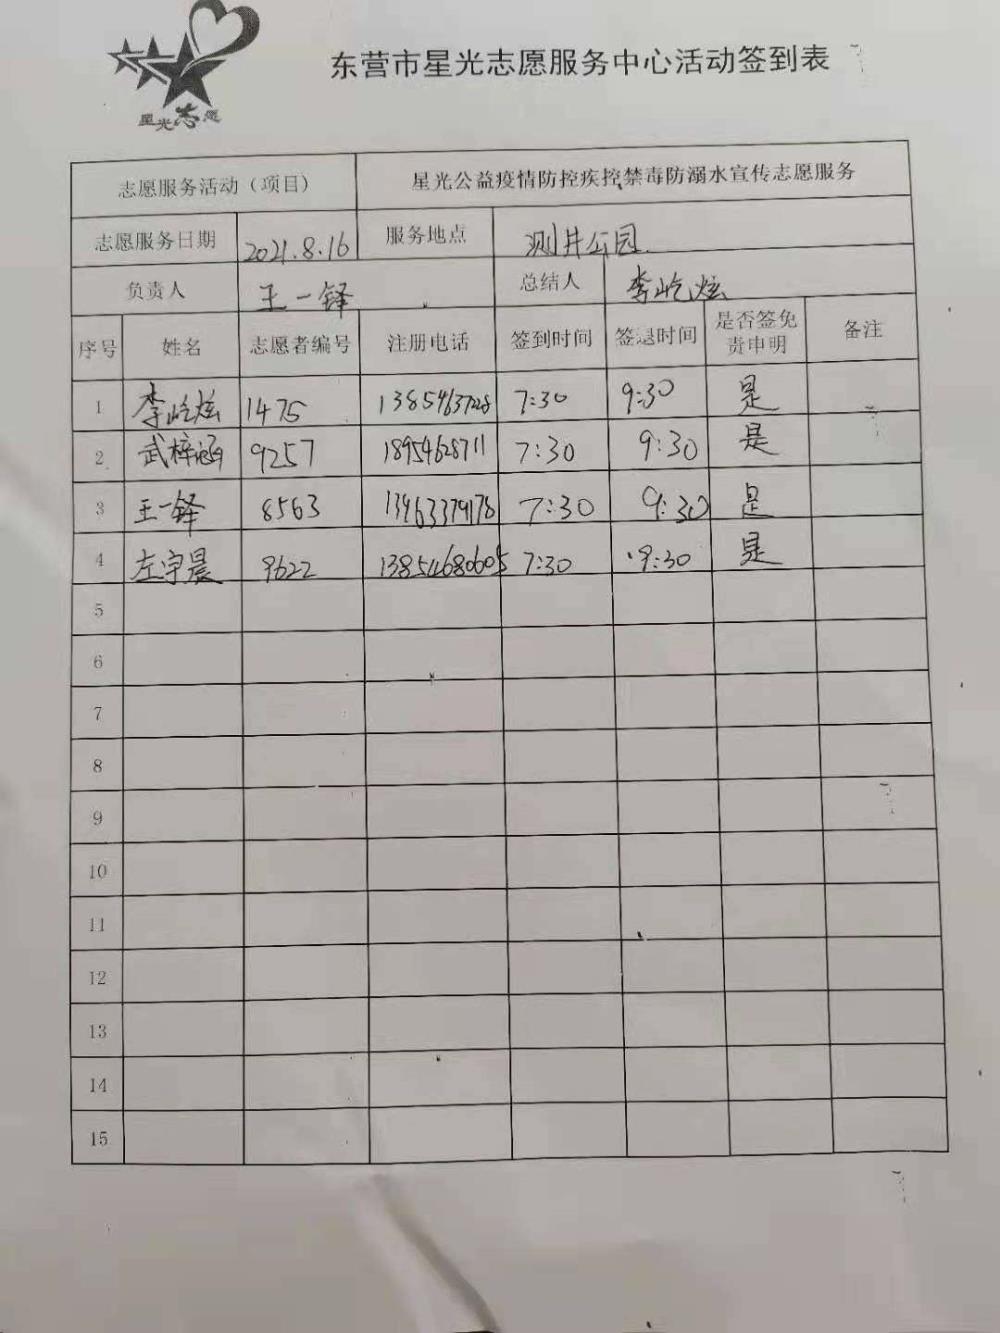 星光志愿
东营市星光志愿服务中心活动签到表
志愿服务活动（项目） 星光公益疫情防控疾控禁毒防溺水宣传志愿服务
志愿服务日期 2021.8.16 服务地点 测井公园
负责人 王一铎 总结人 李屹炫
序号 姓名 志愿者编号 注册电话 签到时间 签退时间 是否签免责申明 备注
1 李屹炫 1475 7:30 9:30 是
2 武梓涵 9257 18954628711 7:30 9:30 是
3 王一铎 8563 13463379178 7:30 9:30 是
4 左宇晨 9622 13854680605 7:30 9:30 是
5
6
7
8
9
10
11
12
13
14
15